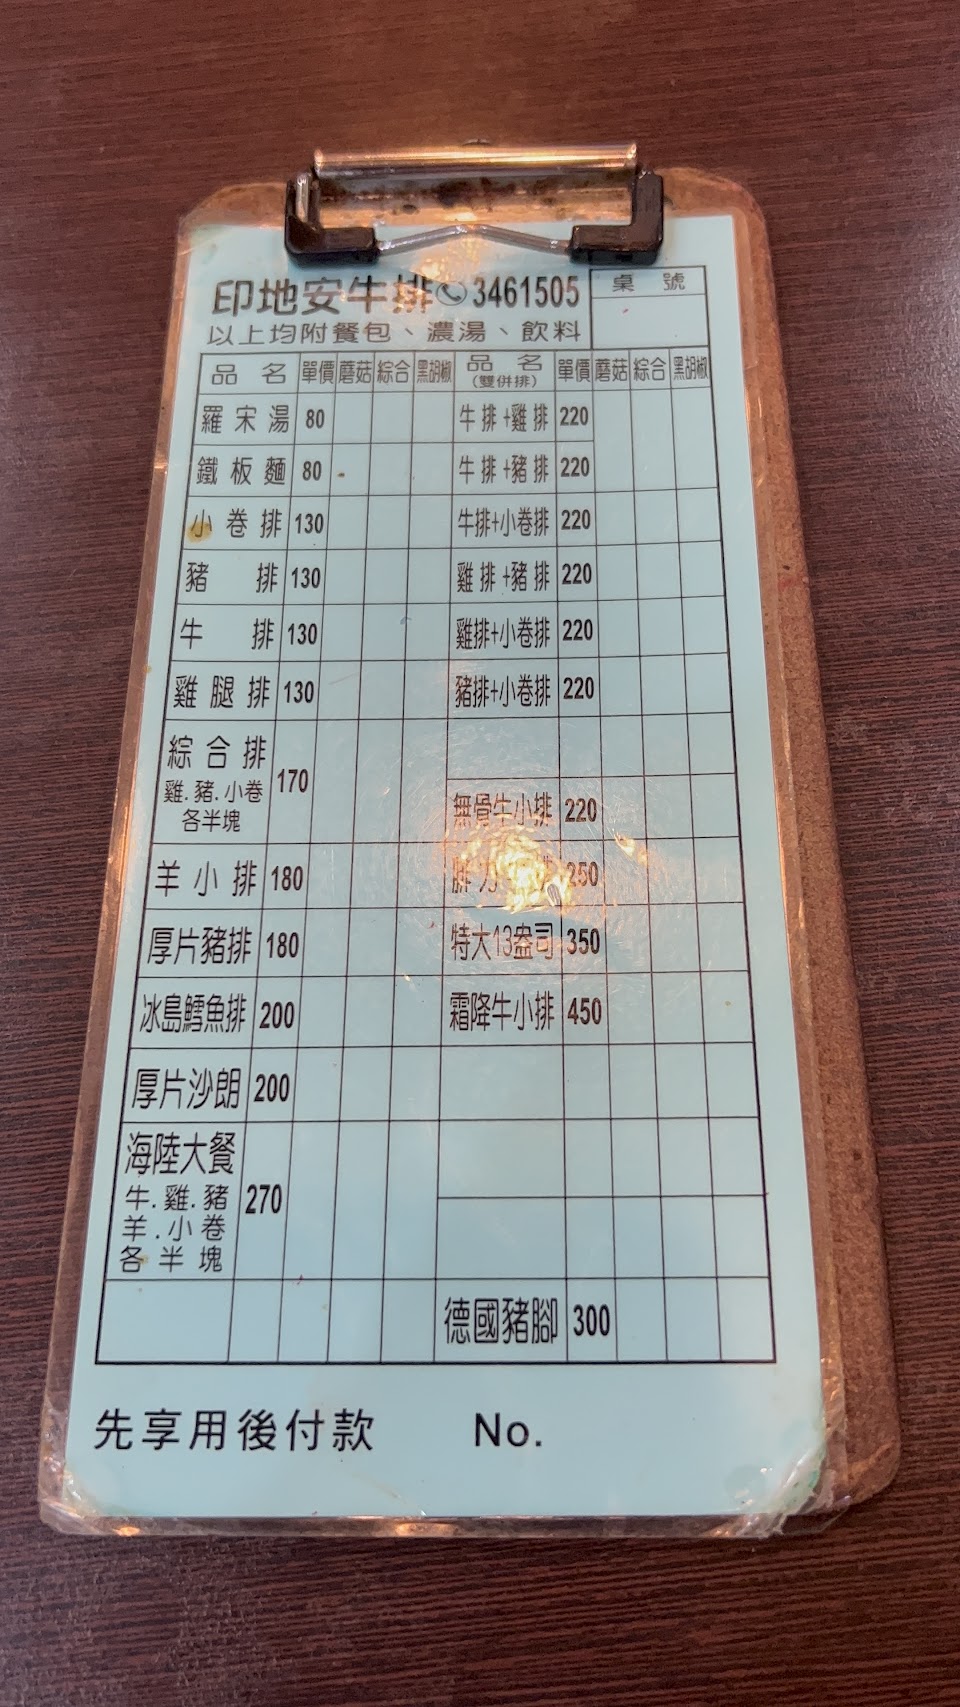 印地安牛排 3461505
桌號
以上均附餐包、濃湯、飲料
品名 單價 蘑菇 綜合 黑胡椒 品名(雙併排) 單價 蘑菇 綜合 黑胡椒
羅宋湯 80 牛排+雞排 220
鐵板麵 80 牛排+豬排 220
小卷排 130 牛排+小卷排 220
豬排 130 雞排+豬排 220
牛排 130 雞排+小卷排 220
雞腿排 130 豬排+小卷排 220
綜合排 170
雞.豬.小卷
各半塊
無骨牛小排 220
羊小排 180 250
厚片豬排 180 特大13盎司 350
冰島鱈魚排 200 霜降牛小排 450
厚片沙朗 200
海陸大餐 270
牛.雞.豬
羊.小卷
各半塊
德國豬腳 300
先享用後付款 No.